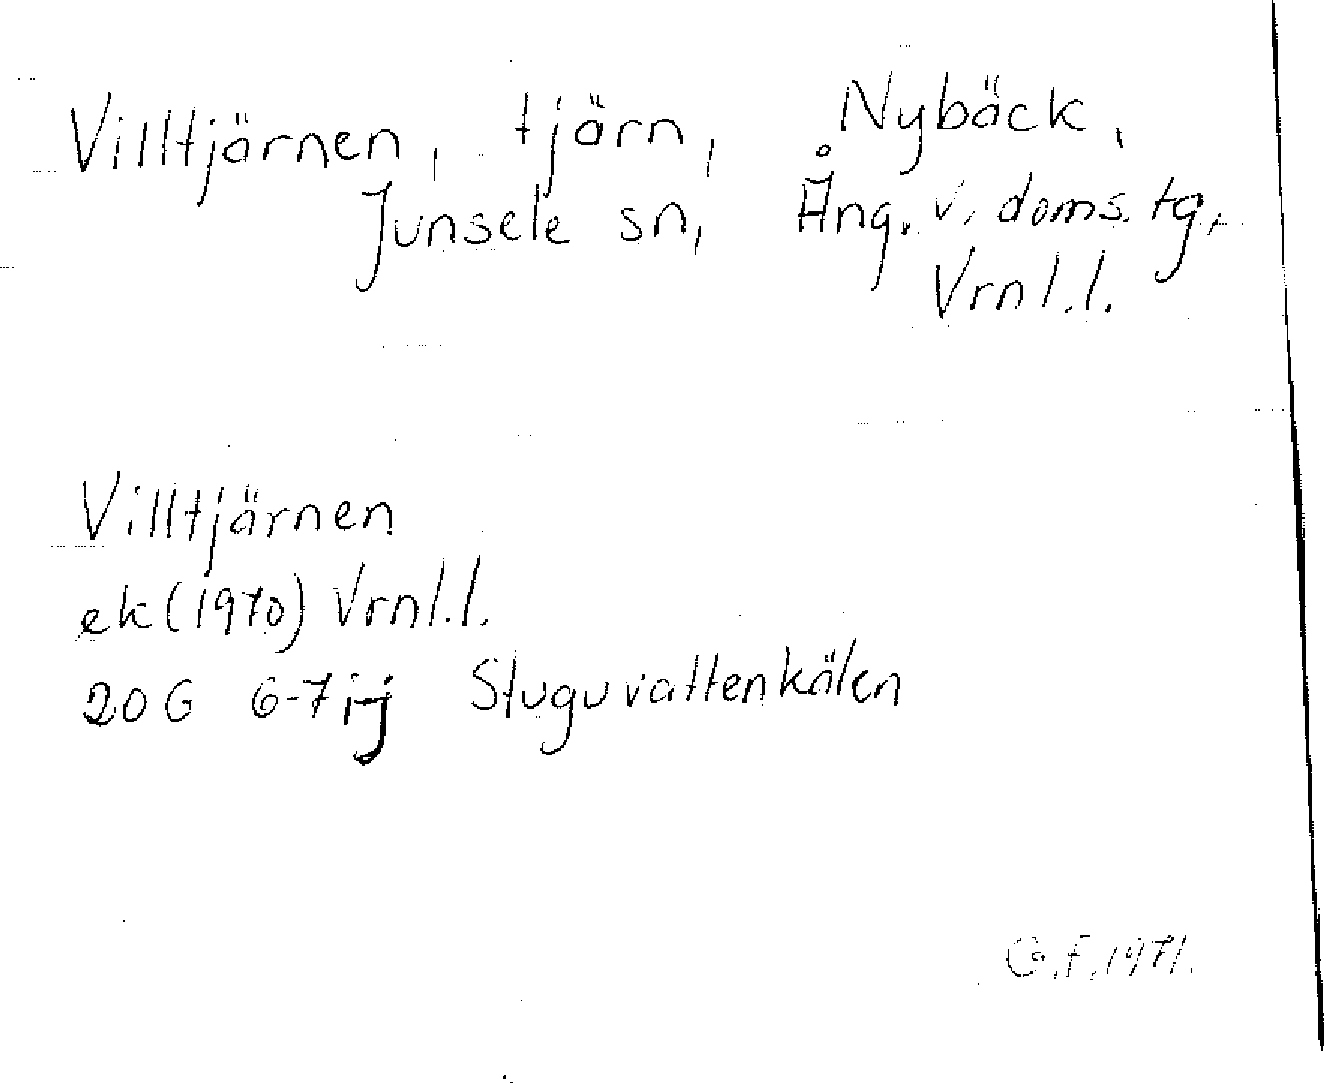 Villtjärnen, tjärn, Nybäck,
Junsele sn, Ång. v. doms. tg,
Vrnl.l.
Villtjärnen
ek (1970) Vrnl.l.
20G 6-7 i-j Stuguvattenkälen
G.F. 1971.